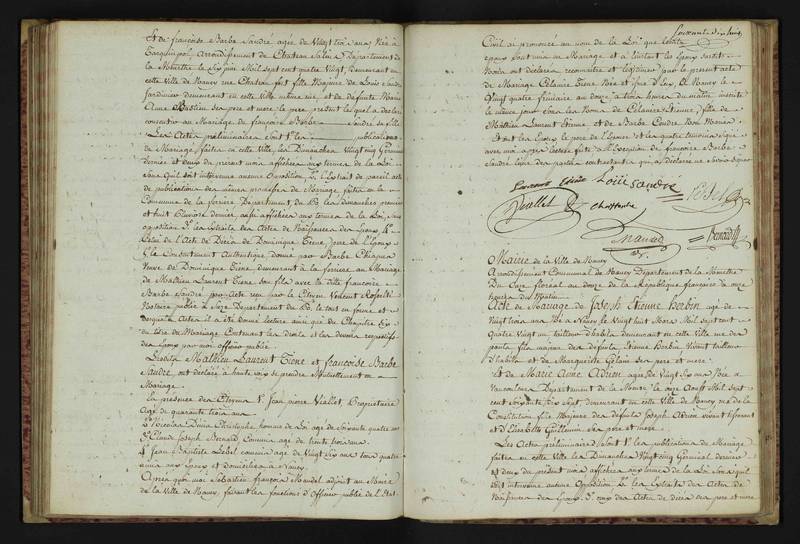 Et de françoise Barbe Sandré agée de Vingt trois ans Née à
Tarquinpol Arrondissement de Chateau Salins Département de
la Meurthe le six juin Mil sept cent quatre Vingt, demeurant en
cette Ville de Nancy rue fille Majeure de Louis Sandré
Jardinier demeurant en cette Ville même rue, et de défunte Marie
Anne Bastien ses pere et mere, le pere présent lequel a déclaré
consentir au Mariage de françoise Barbe Sandré sa fille
Les Actes préliminaires sont 1° les publications
de Mariage faites en cette Ville, les Dimanches Vingt cinq Germinal
dernier et deux du présent mois affichées aux termes de la Loi
sans qu'il soit intervenu aucune Opposition, 2° L'Extrait de pareil acte
de publications des mêmes promesses de Mariage faites en la
Commune de la ferriere Département, du Pô, les dimanches premier
et huit floréal dernier, aussi affichées aux termes de la Loi, sans
opposition 3° les extraits des Actes de Naissances des Epoux, 4°
Celui de l'Acte de Décès de Dominique Tiene, pere de l'Epoux
5° le Consentement Authentique donné par Barbe
Veuve de Dominique Tiene demeurant à la ferriere au Mariage
de Mathieu Laurent Tiene son fils avec la dite françoise
Barbe Sandré par Acte reçu par le Citoyen
Notaire public à Suze Département du Pô, le tout en forme et
desquels Actes il a été donné lecture ainsi que du Chapitre six
du titre du Mariage Contenant les droits et les devoirs respectifs
des Epoux par moi officier public
Lesdits Mathieu Laurent Tiene et françoise Barbe
Sandré, ont déclaré à haute voix se prendre Mutuellement en
Mariage.
En présence des Citoyens 1° Jean pierre Veallet, Propriétaire
Agé de quarante trois ans
2° Nicolas Dima Christophe, homme de Loi agé de Soixante quatre ans
3° Claude Joseph Bernard Commis agé de trente trois ans
4° Jean Baptiste Lebel commis agé de Vingt Six ans tous quatre
amis aux époux et domiciliés à Nancy.
Après quoi moi Sebastien françois Mandel adjoint au Maire
de la Ville de Nancy, faisant les fonctions d'Officier public de l'Etat
Civil ai prononcé au nom de la Loi que lesdits
époux sont unis en Mariage et à l'instant les Epoux
ont déclaré reconnaitre et légitimer par le présent acte
de Mariage Tiene Née à Nancy le
Vingt quatre frimaire an douze
Mathieu Laurent Etiene et de Barbe Sandré
Et ont les Epoux le pere de l'Epouse et les quatre témoins signé
avec moi après lecture faite à l'Exception de françoise Barbe
Sandré l'une des parties contractantes qui a déclaré ne savoir signer
Laurent Etiene Louis Sandré Lebel
Veallet Christophe
Mandel Bernard
Mairie de la Ville de Nancy
Arrondissement Communal de Nancy Département de la Meurthe
Du Onze floréal an douze de la République française à onze
heures du Matin
Acte de Mariage de Joseph Etienne Herbin agé de
Vingt trois ans Né à Nancy le Vingt huit Mars Mil sept cent
Quatre Vingt un tailleur d'habits demeurant en cette Ville rue des
ponts fils majeur des defunts Etienne Herbin Vivant tailleur
d'habits et de Marguerite ses pere et mere
Et de Marie Anne Adrien agée de Vingt Six ans Née à
Vaucouleurs Département de la Meuse le onze Aoust Mil Sept
cent Soixante Dix Sept demeurant en cette Ville de Nancy rue de la
Constitution fille Majeure des defunts Joseph Adrien vivant tisserant
et d'Elisabeth Guillemin ses pere et mere.
Les Actes préliminaires sont 1° les publications de Mariage
faites en cette Ville les Dimanches Vingt cinq Germinal dernier
et deux du présent mois affichées aux termes de la Loi sans qu'il
soit intervenu aucune Opposition 2° les extraits des Actes de
Naissances des Epoux 3° ceux des Actes de décès des pere et mere